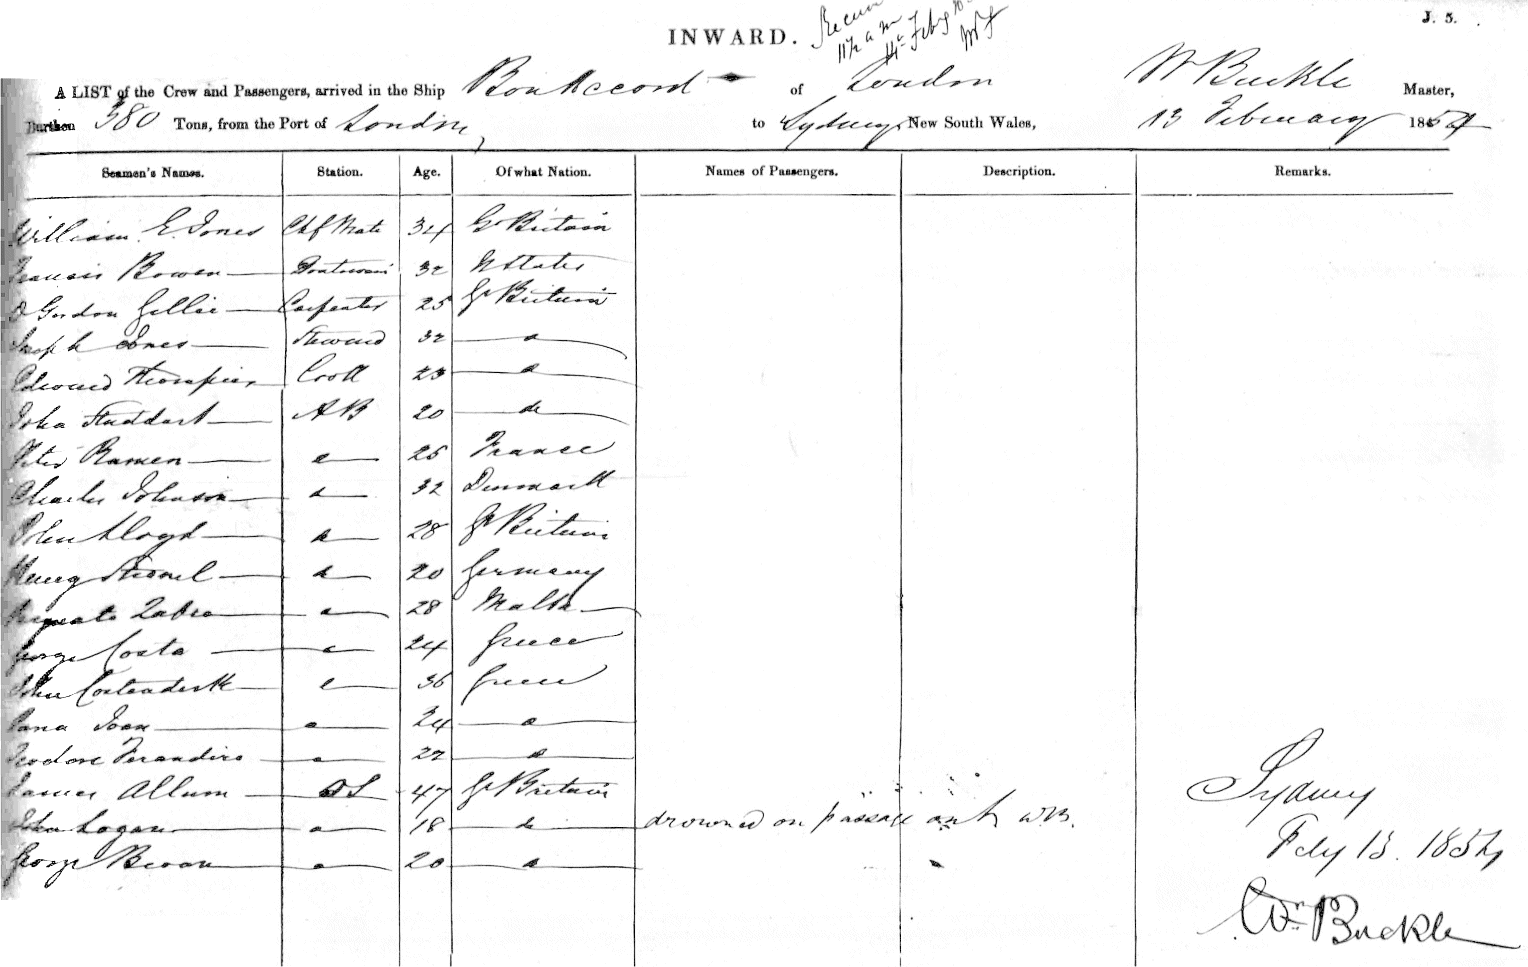 INWARD.
11½ a m
14 Feby
J. 5.
A LIST of the Crew and Passengers, arrived in the Ship Bon Accord of London Wm Buckle Master,
Burthen 380 Tons, from the Port of London to Sydney, New South Wales, 13 February 1854
Seamen's Names. Station. Age. Of what Nation. Names of Passengers. Description. Remarks.
William E. Jones Chf Mate 34 Gt Britain
Francis Bowen Boatswain 32 U States
D Gordon Gellie Carpenter 25 Gt Britain
Joseph Jones Steward 32 do
Edward Thompson Cook 23 do
John Studdart AB 20 do
Peter Ramen do 26 France
Charles Johnson do 32 Denmark
John Lloyd do 28 Gt Britain
Henry do 20 Germany
do 28 Malta
George Costa do 24 Greece
John do 36 Greece
Joan do 24 do
Teodore Ferandiro do 22 do
James Allum OS 47 Gt Britain
John Logan do 18 do drowned on passage out WB.
George Bevan do 20 do
Sydney
Feby 13. 1854
Wm Buckle